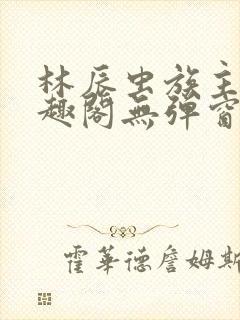 林辰虫族主
趣阁無弹窗
霍華德詹姆斯